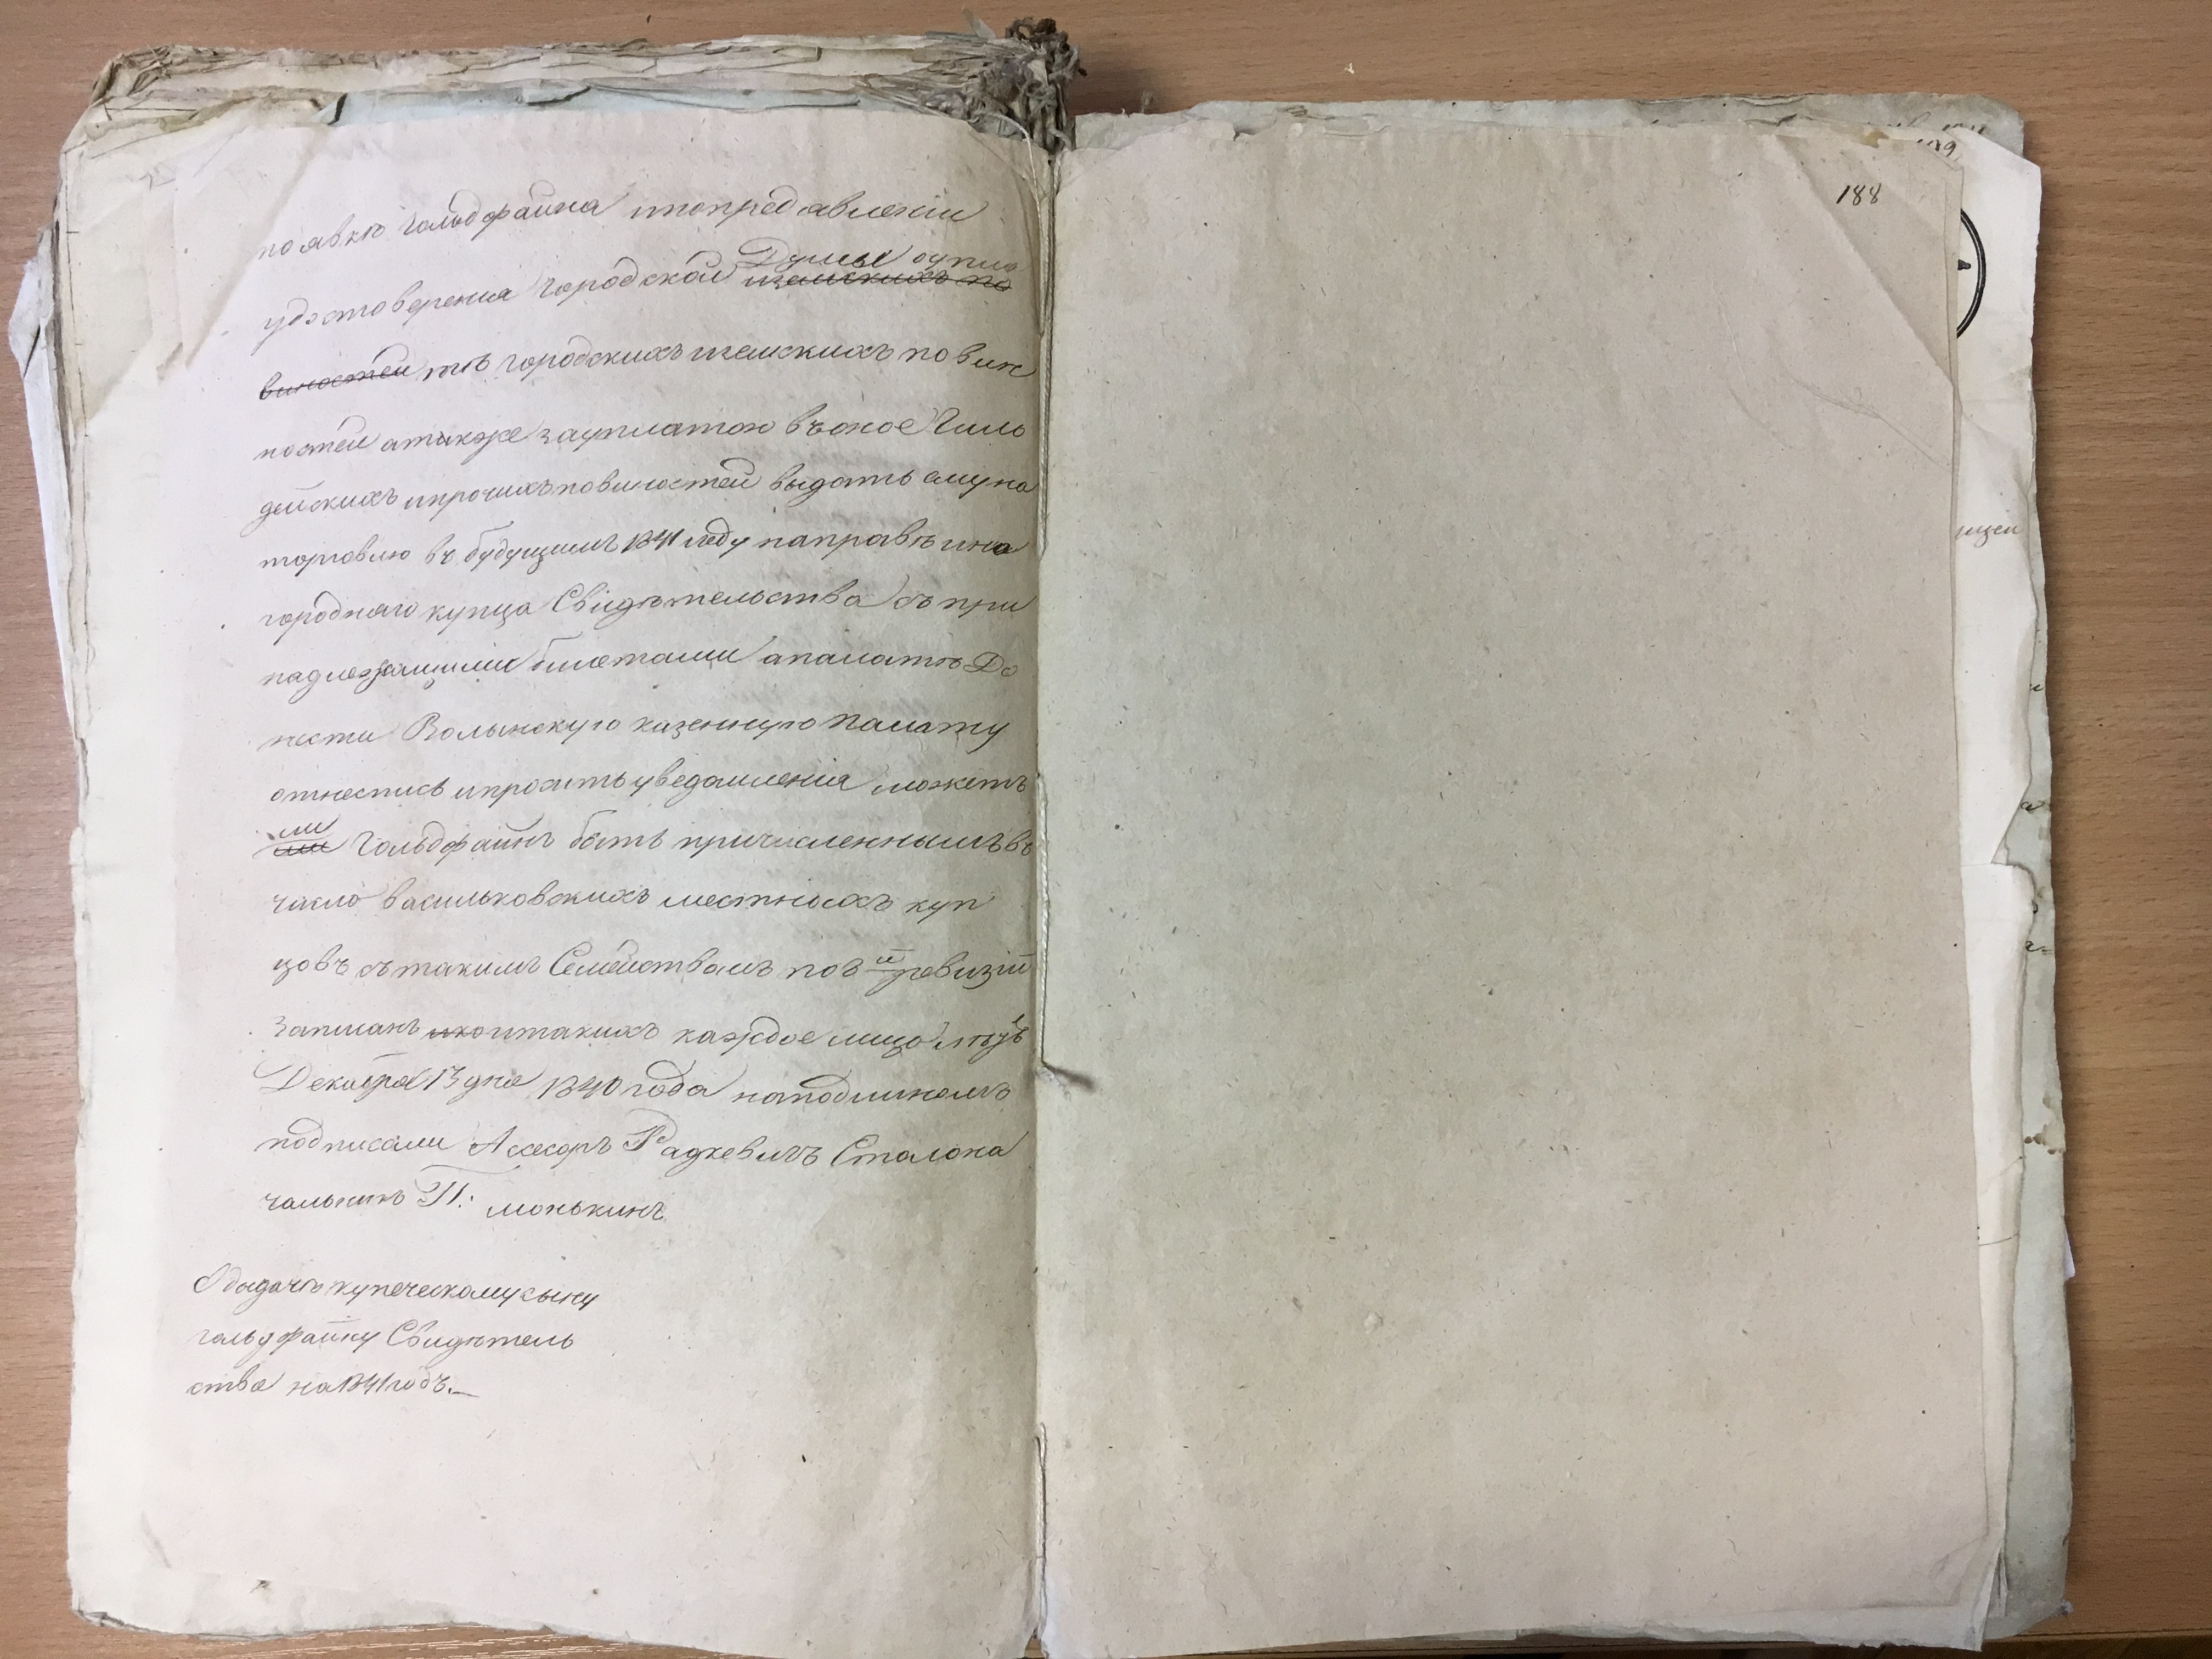 по явкѣ Гольдфайна ипопредъявленіи
удостоверенія Городской Думы оупла
иземскихъ по
виностей тѣ городскихъ иземскихъ повин
ностей атакже зауплатою въоное Гиль
дейскихъ ипрочихъ повиностей выдать ему на
торговлю въ будущемъ 1841 году направѣ ино
городнаго купца Свидѣтельства съ при
надлежащими билетами апалатѣ До
нести Волынскую казенную палату
отнестись ипросить уведомленія можетъ
ли
ли Гольдфайнъ быть причисленнымъ въ
число васильковскихъ местныхъ куп
цовъ съ такимъ Семействомъ по 8й ревизіи
записанъ икоитакихъ каждое лицо лѣтъ
Декабря 13 дня 1840 года наподлиномъ
подписали Асесоръ Радкевичъ Столона
чальникъ П. монькинъ
Овыдачѣ купеческому сыну
гольдфайну Свидѣтель
ства на 1841 годъ.
188
189
ищей